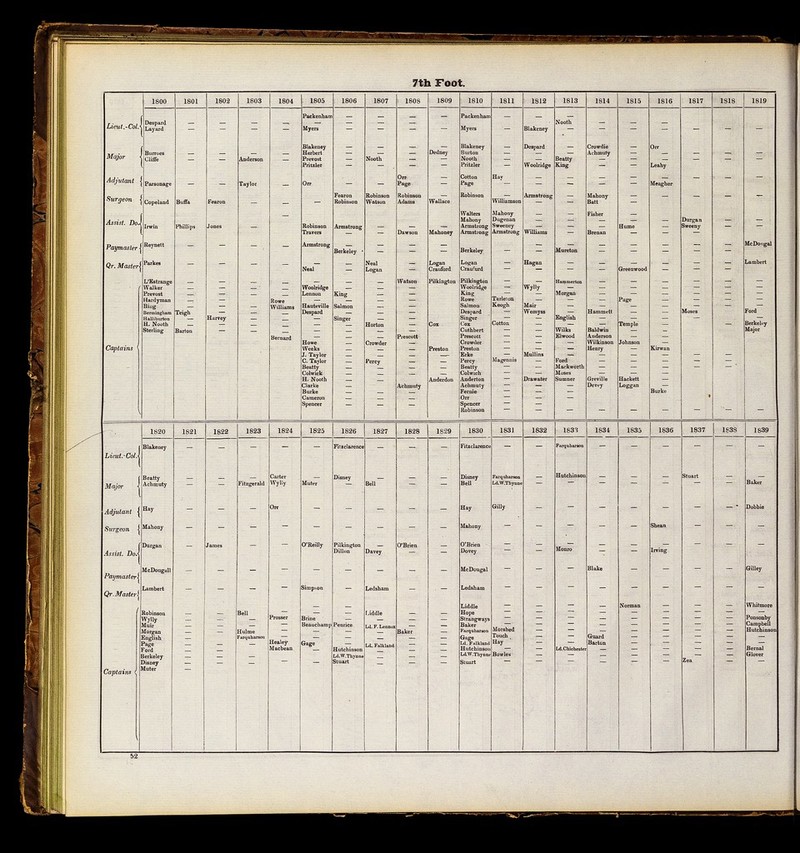 7th Foot.
1800 1801 1802 1803 1804 1805 1806 1807 1808 1809 1810 1811 1812 1813 1814 1815 1816 1817 1818 1819
Packenham Packenham
Lieut.-Col. Despard Nooth
Layard Myers Myers Blakeney
Blakeney Blakeney Despard Crowdie Orr
Major Burrows Herbert Dedney Burton Achmuty
Cliffe Anderson Prevost Nooth Nooth Beatty
Pritzler Pritzler Woolridge King Leahy
Adjutant Orr Cotton Hay
Parsonage Taylor Orr Page Page Meagher
Surgeon Fearon Robinson Robinson Robinson Armstrong Mahony
Copeland Buffa Fearon Robinson Watson Adams Wallace Williamson Batt
Walters Mahony Fisher
Assist. Do. Mahony Dogenan Dorgan
Irwin Phillips Jones Robinson Armstrong Armstrong Sweeney Hume Sweeny
Travers Dawson Mahoney Armstrong Armstrong Williams Brenan
Paymaster Reynett Armstrong McDougal
Berkeley Berkeley Moreton
Qr. Master Parkes Neal Logan Logan Hagan Lambert
Neal Logan Crauford Craufurd Greenwood
L'Estrange Watson Pilkington Pilkington Hammerton
Walker Woolridge Woolridge Wylly
Prevost Lennon King King Morgan
Hardyman Rowe Rowe Tarleton Page
Bing Williams Hauteville Salmon Salmon Keogh Mair
Bermingham Trigh Despard Despard Wemyss Hammett Moses Ford
Halliburton Harvey Singer Singer English
H. Nooth Horton Cox Cox Cotton Temple Berkeley
Sterling Barton Cuthbert Wilks Baldwin Major
Bernard Prescott Prescott Elwood Anderson
Howe Crowder Crowder Wilkinson Johnson
Captains Weeks Preston Preston Henry Kirwan
J. Taylor Erke Mullins
C. Taylor Percy Percy Magennis Ford
Beatty Beatty Mackworth
Colwich Colwich Moses
H. Nooth Anderdon Anderton Drawater Sumner Greville Hackett
Clarke Achmuty Achmuty Devey Loggan
Burke Fernie Burke
Cameron Orr
Spencer Spencer
Robinson
1820 1821 1822 1823 1824 1825 1826 1827 1828 1829 1830 1831 1832 1833 1834 1835 1836 1837 1838 1839
Lieut.-Col. Blakeney Fitzclarence Fitzclarence Farquharson
Major Beatty Carter Disney Disney Farquharson Hutchinson Stuart
Achmuty Fitzgerald Wylly Muter Bell Bell Ld.W.Thynne Baker
Adjutant Hay Orr Hay Gilly Dobbie
Surgeon Mahony Mahony Shean
Assist. Do. Dorgan James O'Reilly Pilkington O'Brien O'Brien
Dillon Davey Dovey Monro Irving
Paymaster McDougall McDougal Blake Gilley
Qr. Master Lambert Simpson Ledsham Ledsham
Liddle Norman Whitmore
Robinson Bell Liddle Hope
Wylly Prosser Brine Strangways Ponsonby
Mair Beauchamp Penrice Ld. F. Lennox Baker Campbell
Morgan Hulme Baker Farquharson Morshed Hutchinson
English Farquharson Gage Touch Guard
Page Healey Gage Ld. Falkland Ld. Falkland Hay Barton
Ford Macbean Hutchinson Hutchinson Ld.Chichester Bernal
Berkeley Ld.W.Thynne Ld.W.Thynne Bowles Glover
Captains Disney Stuart Stuart Zea
Muter
52